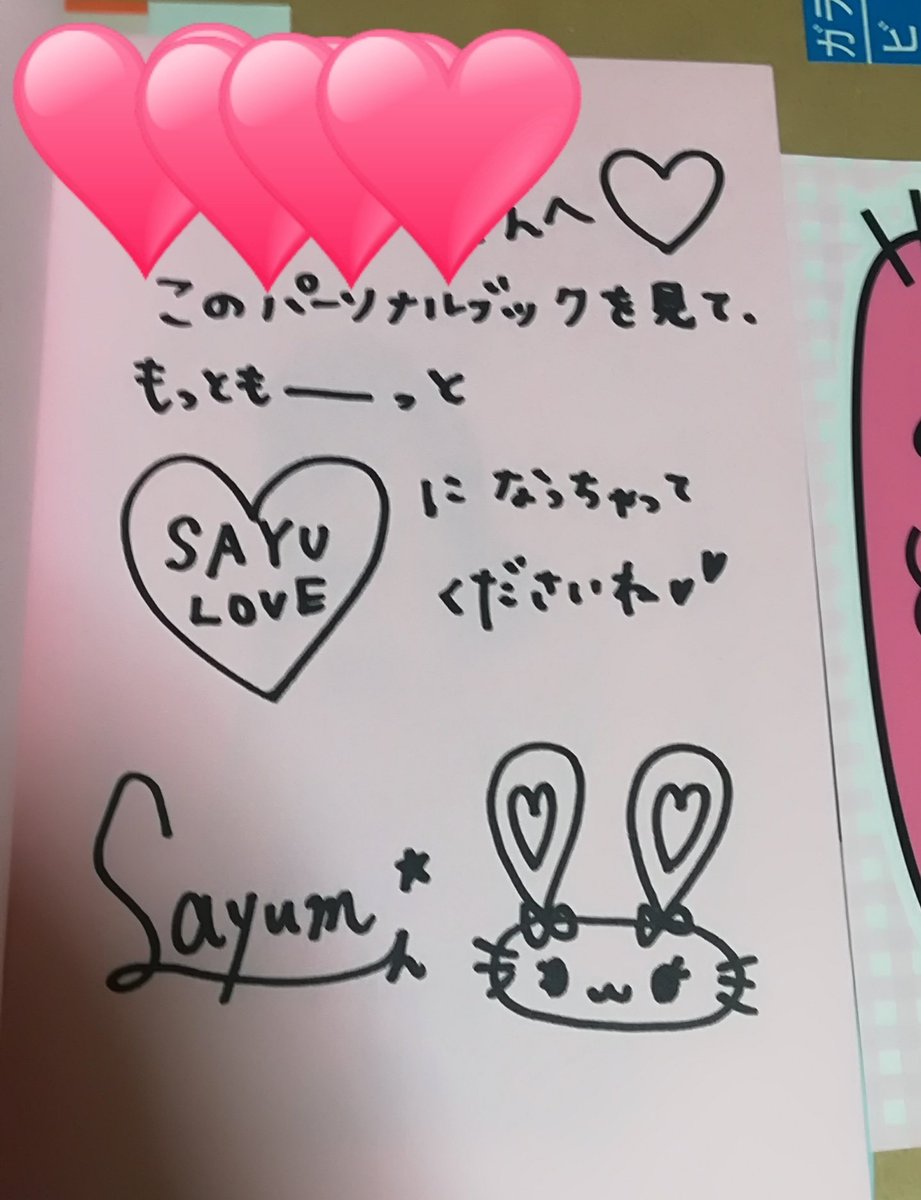 ガラ
ビ
さんへ♡
このパーソナルブックを見て、
もっともーっと
SAYU
LOVE
になっちゃって
くださいね♥♥
Sayumん★